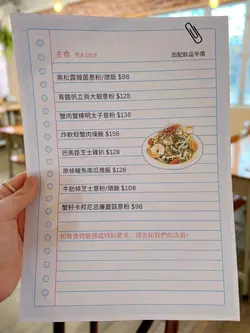 主食 Mains
加配飲品半價
黑松露雜菌意粉/燉飯 $98
青醬帆立貝大蝦意粉 $128
蟹肉蟹棒明太子意粉 $138
炸軟殼蟹肉燥飯 $158
巴馬臣芝士雞扒 $128
原條鰻魚南瓜燉飯 $128
牛肋條芝士意粉/燉飯 $108
蟹籽卡邦尼忌廉蘑菇意粉 $98
如有食物敏感或特別要求，請告知我們的店員!